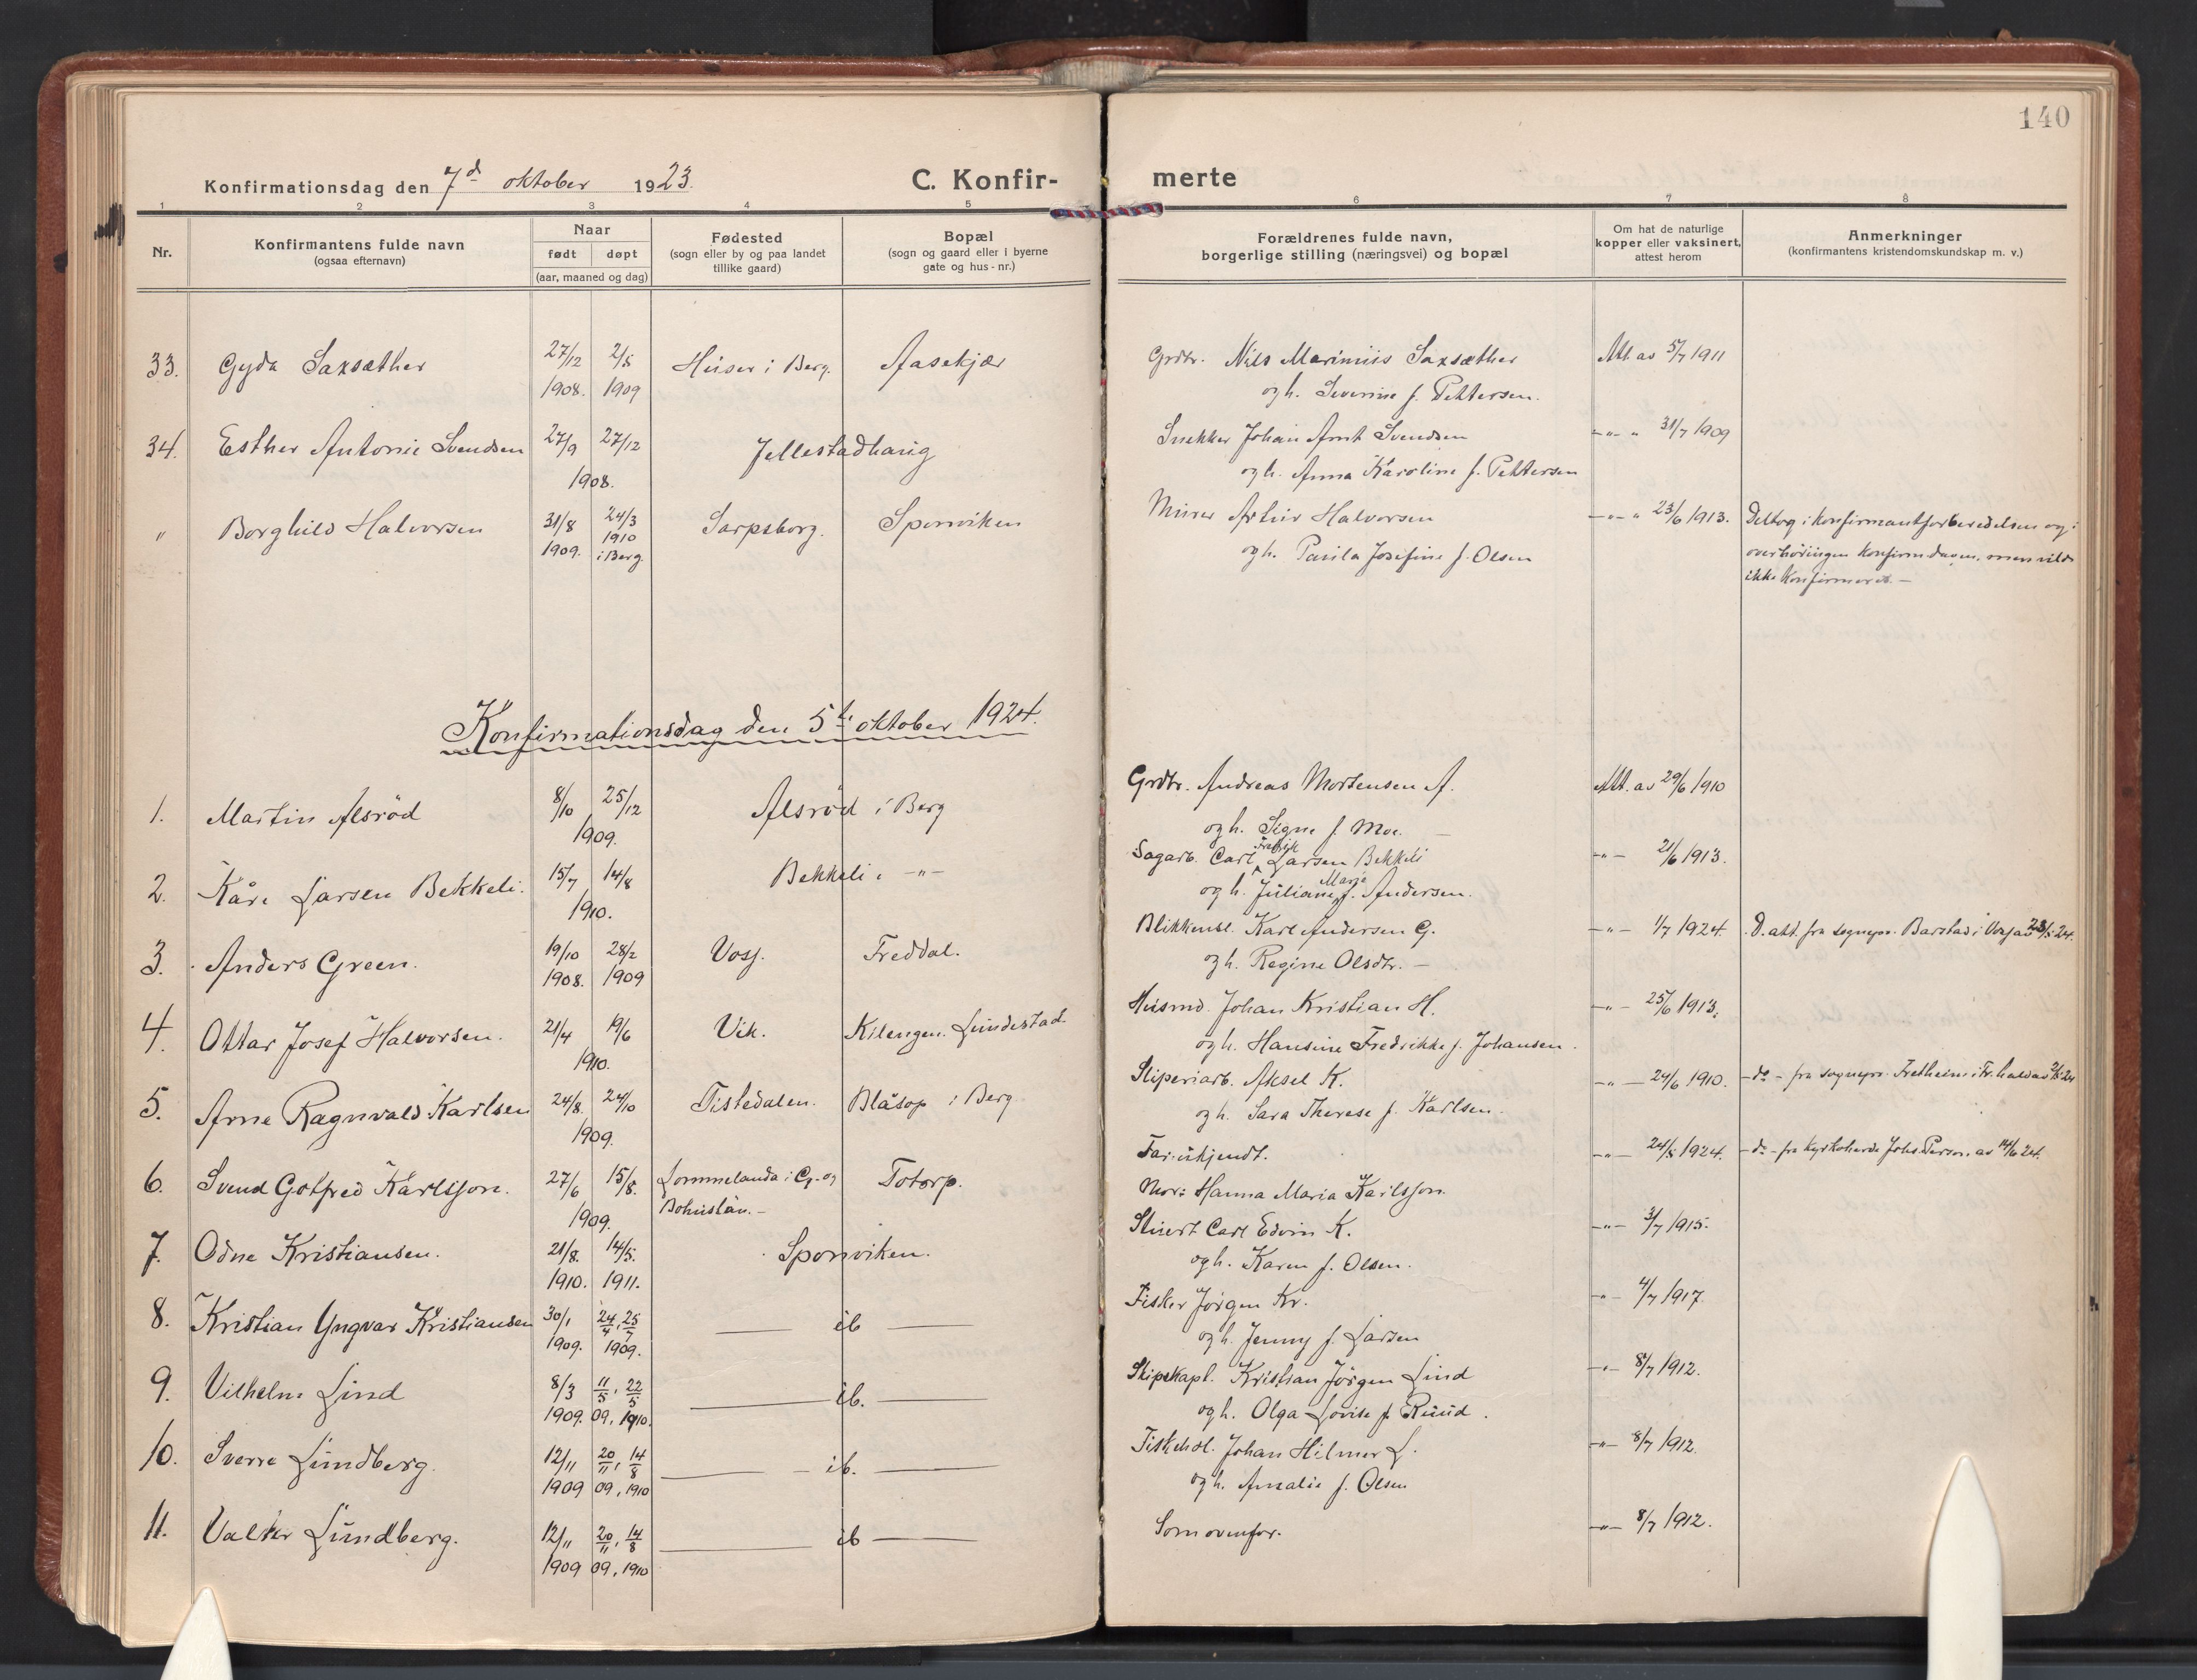 140
Konfirmationsdag den 7d oktober 1923. C. Konfir- merte
1 2 3 4 5 6 7 8
Nr. Konfirmantens fulde navn (ogsaa efternavn) Naar født døpt (aar, maaned og dag) Fødested (sogn eller by og paa landet tillike gaard) Bopæl (sogn og gaard eller i byerne gate og hus-nr.) Forældrenes fulde navn, borgerlige stilling (næringsvei) og bopæl Om hat de naturlige kopper eller vaksinert, attest herom Anmerkninger (konfirmantens kristendomskundskap m. v.)
33. Gyda Saxsæther 27/12 1908. 2/5 1909 Huser i Berg. Aasekjær Grdbr. Nils Marinius Saxsæther Att av 5/7 1911
og h. Severine f. Pettersen.
34. Esther Antonie Svendsen 27/9 27/12 1908. Jellestadhaug Snekker Johan Arnt Svendsen -"- " 31/7 1909
og h. Anna Karoline f. Pettersen
" Borghild Halvorsen 31/8 1909. 24/3 1910 i Berg. Sarpsborg. Sponviken Murer Artur Halvorsen -"- " 23/6 1913. Deltog i konfirmantforberedelsen og i
og h. Paula Josefine f. Olsen overhöringen konfirm.dagen, men vilde
ikke konfirmeres. -
Konfirmationsdag den 5te oktober 1924.
1. Martin Alsröd 8/10 25/12 1909. Alsröd i Berg Grdbr. Andreas Mortensen A. Att. av 29/6 1910
og h. Signe f. Moe. -
2. Kåre Larsen Bekkeli. 15/7 14/8 1910. Bekkeli i -"- Sagarb. Carl Fredrik Larsen Bekkeli -"- 21/6 1913.
og h. Juliane Marie f. Andersen.
3. Anders Green. 19/10 1908. 28/2 1909 Voss. Freddal. Blikkensl. Karl Andersen G. -"- 1/7 1924. D. att. fra sognepr. Barstad i Voss av 23/5 24.
og h. Regine Olsdtr. -
4. Ottar Josef Halvorsen. 21/4 19/6 1910. Vik. Kilengen. Lundestad. Husmd. Johan Kristian H. -"- 25/6 1913.
og h. Hansine Fredrikke f. Johansen.
5. Arne Ragnvald Karlsen 24/8. 24/10 1909. Tistedalen. Blåsop i Berg. Sliperiarb. Aksel K. -"- 24/6 1910. -do- fra sognepr. Fretheim i Fr.hald av
og h. Sara Therese f. Karlsen.
6. Svend Gotfred Karlsson. 27/6 15/8. 1909. Lommelanda i G.- og Bohuslän. - Totorp. Far: ukjendt. -"- 24/5 1924. -do- fra Kyrkoherde Johs. Person. av 14/6 24.
Mor: Hanna Maria Karlsson.
7. Odne Kristiansen. 21/8. 1910. 14/5. 1911. Sponviken. Stuert Carl Edvin K. -"- 3/7 1915.
og h. Karen f. Olsen.
8. Kristian Yngvar Kristiansen 30/1 1909. 24/4, 25/7 1909. ib Fisker Jörgen Kr. -"- 4/7 1917.
og h. Jenny f. Larsen
9. Vilhelm Lind 8/3 1909. 11/5, 22/5 09, 1910. ib. Skipskapt. Kristian Jörgen Lind -"- 8/7 1912.
og h. Olga Lovise f. Ruud.
10. Sverre Lundberg. 12/11 1909 20/11, 14/8 09, 1910 ib. Fiskehdl. Johan Hilmer L. -"- 8/7 1912.
og h. Amalie f. Olsen
11. Valter Lundberg. 12/11 1909 20/11, 14/8 09, 1910 ib Som ovenfor. -"- 8/7 1912.